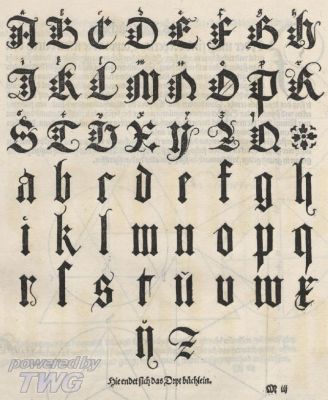 A B C D E F G H
I K L M N O P R
S T V X Y Z Q
a b c d e f g h
i k l m n o p q
r ſ s t ü v w x
ÿ z
Hie endet sich das Dryt büchlein.
M iij
powered by
TWG